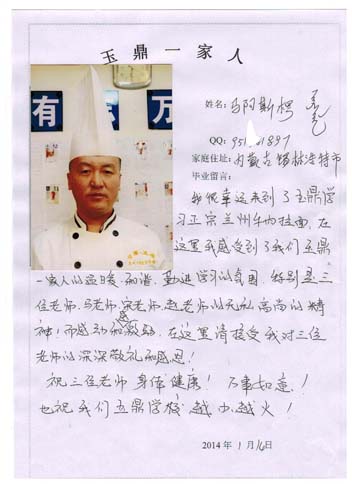 玉鼎一家人
有 万
姓名: 马阿斯楞
QQ: 951 1897
家庭住址: 内蒙古锡林浩特市
毕业留言:
我很幸运来到了玉鼎学
习正宗兰州牛肉拉面, 在
这里我感受到了我们玉鼎
一家人的温暖、和谐、勤进学习的氛围 特别是三
位老师, 马老师 宋老师, 赵老师的无私高尚的精
神! 而感动和 在这里请接受我对三位
老师的深深敬礼和感恩!
祝三位老师 身体健康! 万事如意!
也祝我们玉鼎学校 越办越火!
2014年 1月16日